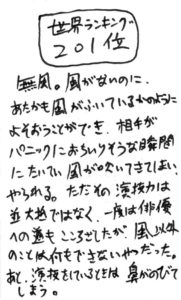 世界ランキング
201位
無風。風がないのに、
あたかも風がふいているかのように
よそおうことができ、相手が
パニックにおちいりそうな瞬間
にたいてい風が吹いてきてしまい
やられる。ただその演技力は
並大抵ではなく、一度は俳優
への道もこころざしたが、風以外
のことは何もできないやつだった。
あと、演技をしているときは鼻がのびて
しまう。